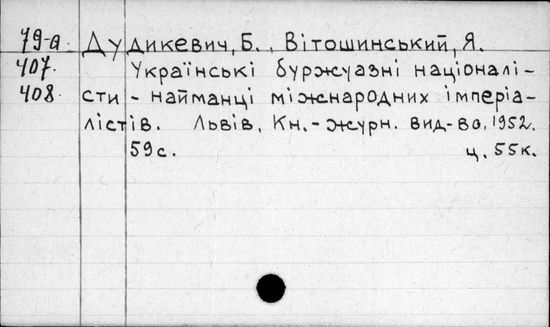 79-а. Дудикевич, Б., Вітошинський, Я.
407. Українські буржуазні націоналі-
408. сти - найманці міжнародних імперіа-
лістів. Львів, Кн.-журн. вид-во, 1952.
59 с. ц. 55к.